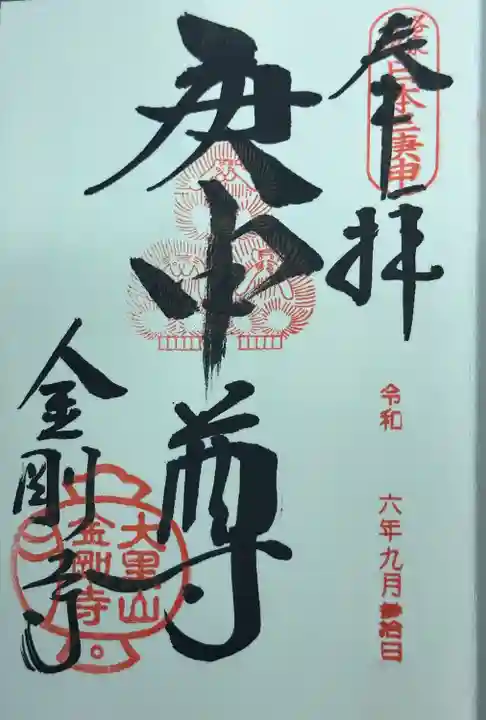 奉拝
日本三庚申
令和 六年九月参拾日
庚申尊
金剛寺
大黒山
金剛寺